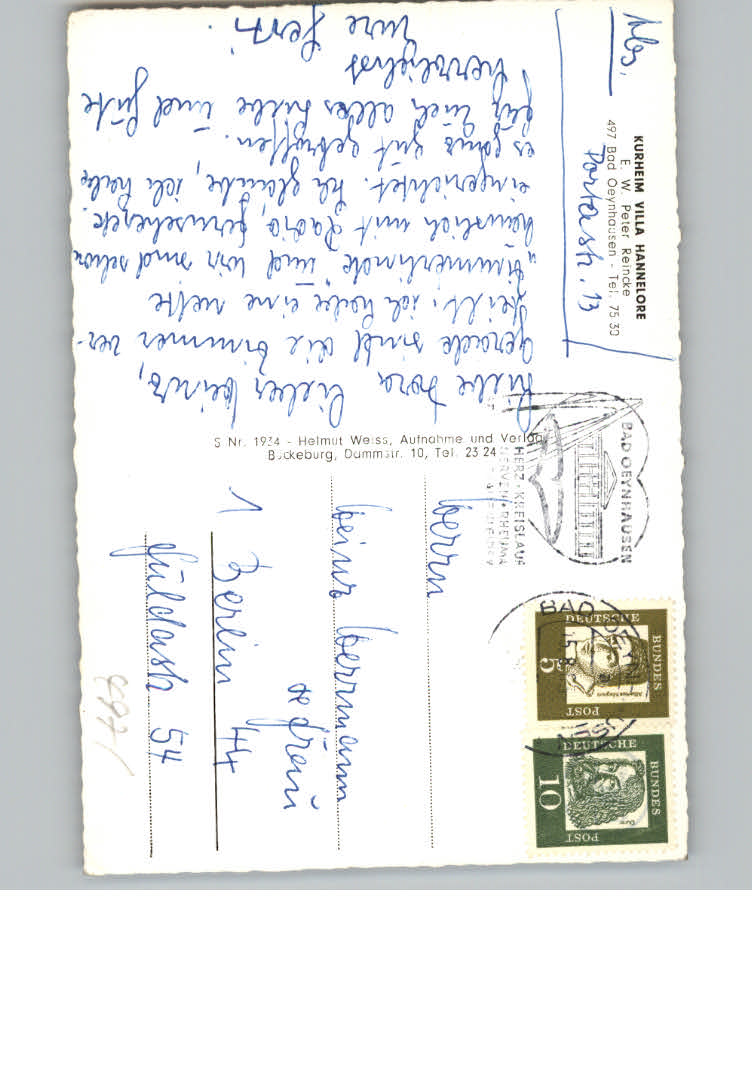 Abs.
KURHEIM VILLA HANNELORE
E. W. Peter Reincke
497 Bad Oeynhausen - Tel. 75 30
Portastr. 13
Liebe Dora lieber Heinz,
Gerade sind die Zimmer ver-
teilt, ich habe eine nette
"Zimmerlinde" und wir sind schon
häuslich mit Radio, Fernseher etc.
eingerichtet. Ich glaube, ich habe
es ganz gut getroffen.
Für Euch alles Liebe und Gute
herzlichst
Eure
S Nr. 1934 - Helmut Weiss, Aufnahme und Verlag
Bückeburg, Dammstr. 10, Tel. 23 24
BAD OEYNHAUSEN
HERZ · KREISLAUF
NERVEN · RHEUMA
BAD OEYNHAUSEN
DEUTSCHE
BUNDES
POST
5
Albertus Magnus
DEUTSCHE
BUNDES
POST
10
Dürer
Herrn
Heinz Herrmann
& Frau
1 Berlin 44
Fuldastr 54